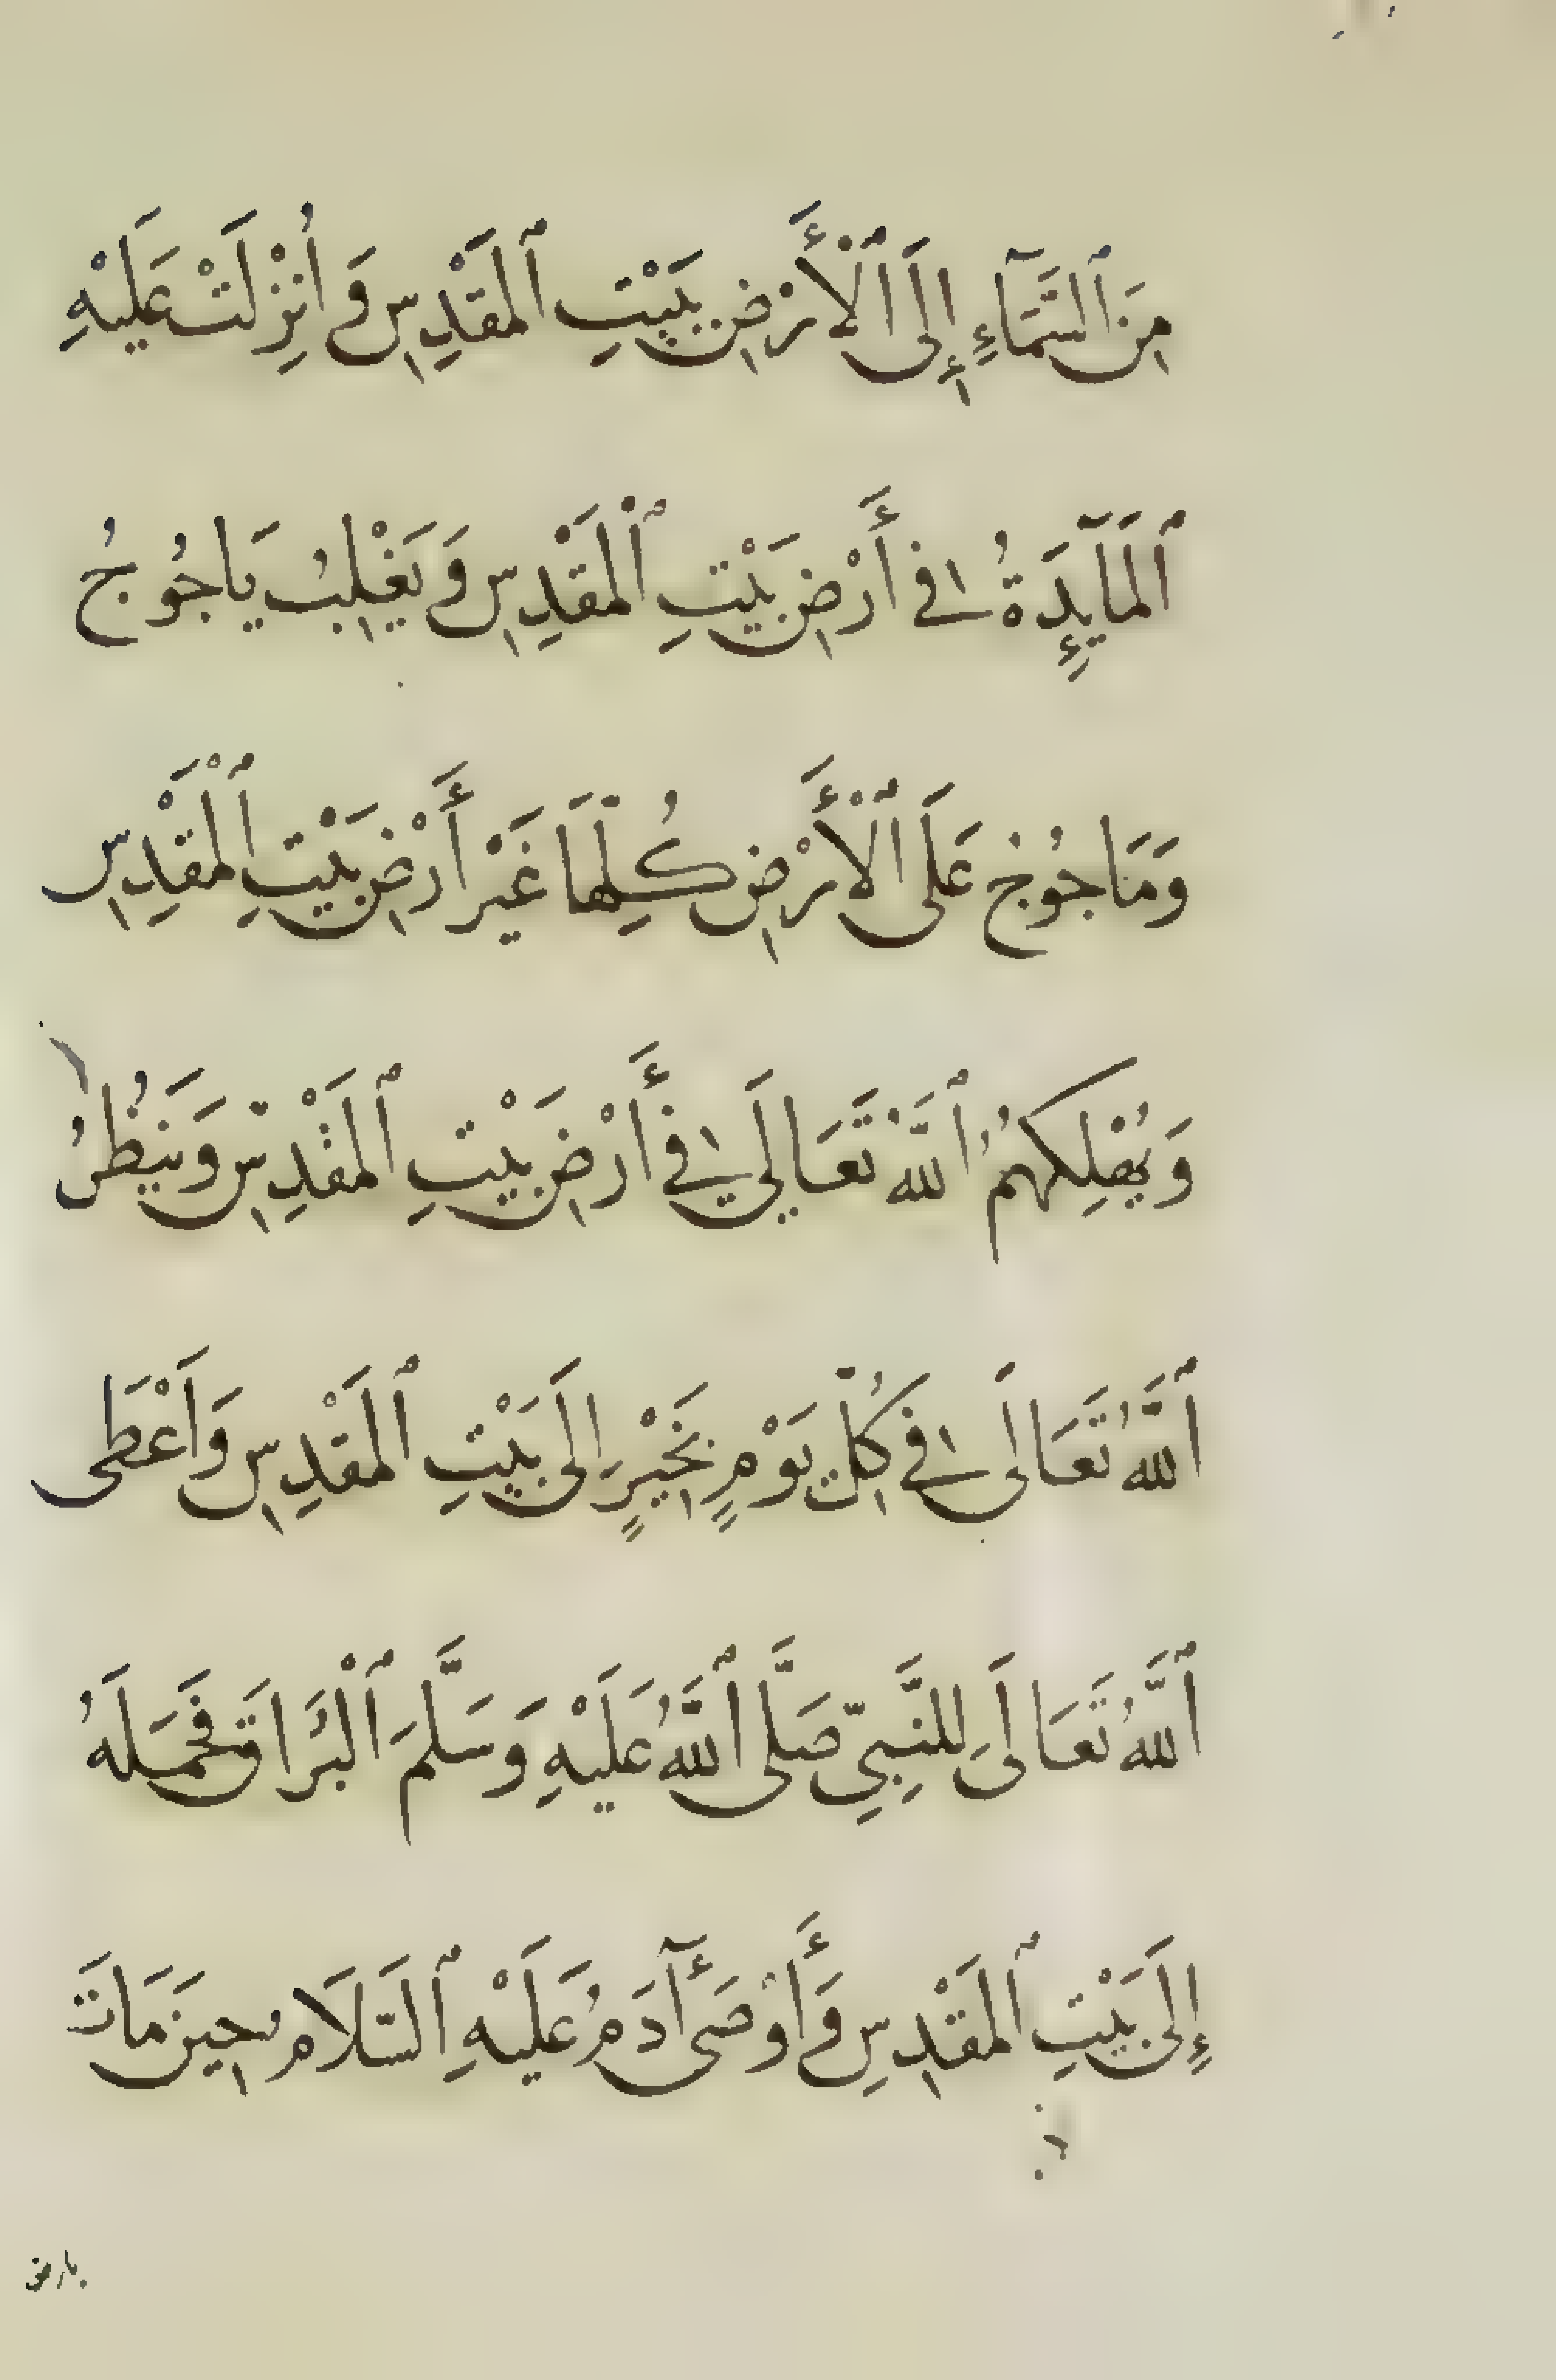 مِنَ ٱلسَّمَآءِ إِلَى ٱلْأَرْضِ بَيْتِ ٱلمَقْدِسِ وَ أُنْزِلَتْ عَلَيْهِ
ٱلمَآيِدَةُ فِي أَرْضِ بَيْتِ ٱلْمَقْدِسِ وَيَغْلِبُ يَاجُوجُ
وَمَاجُوجُ عَلَى ٱلْأَرْضِ كُلِّهَا غَيْرَ أَرْضِ بَيْتِ ٱلْمَقْدِسِ
وَيُهْلِكُهُمُ ٱللَّهُ تَعَالَى فِي أَرْضِ بَيْتِ ٱلمَقْدِسِ وَيَنْظُرُ
ٱللَّهُ تَعَالَى فِي كُلِّ يَوْمٍ بِخَيْرٍ إِلَى بَيْتِ ٱلمَقْدِسِ وَأَعْطَى
ٱللَّهُ تَعَالَى لِلنَّبِيِّ صَلَّى ٱللَّهُ عَلَيْهِ وَسَلَّمَ ٱلْبُرَاقَ فَحَمَلَهُ
إِلَى بَيْتِ ٱلمَقْدِسِ وَأَوْصَى آدَمُ عَلَيْهِ ٱلسَّلَامُ حِينَ مَاتَ
بارض